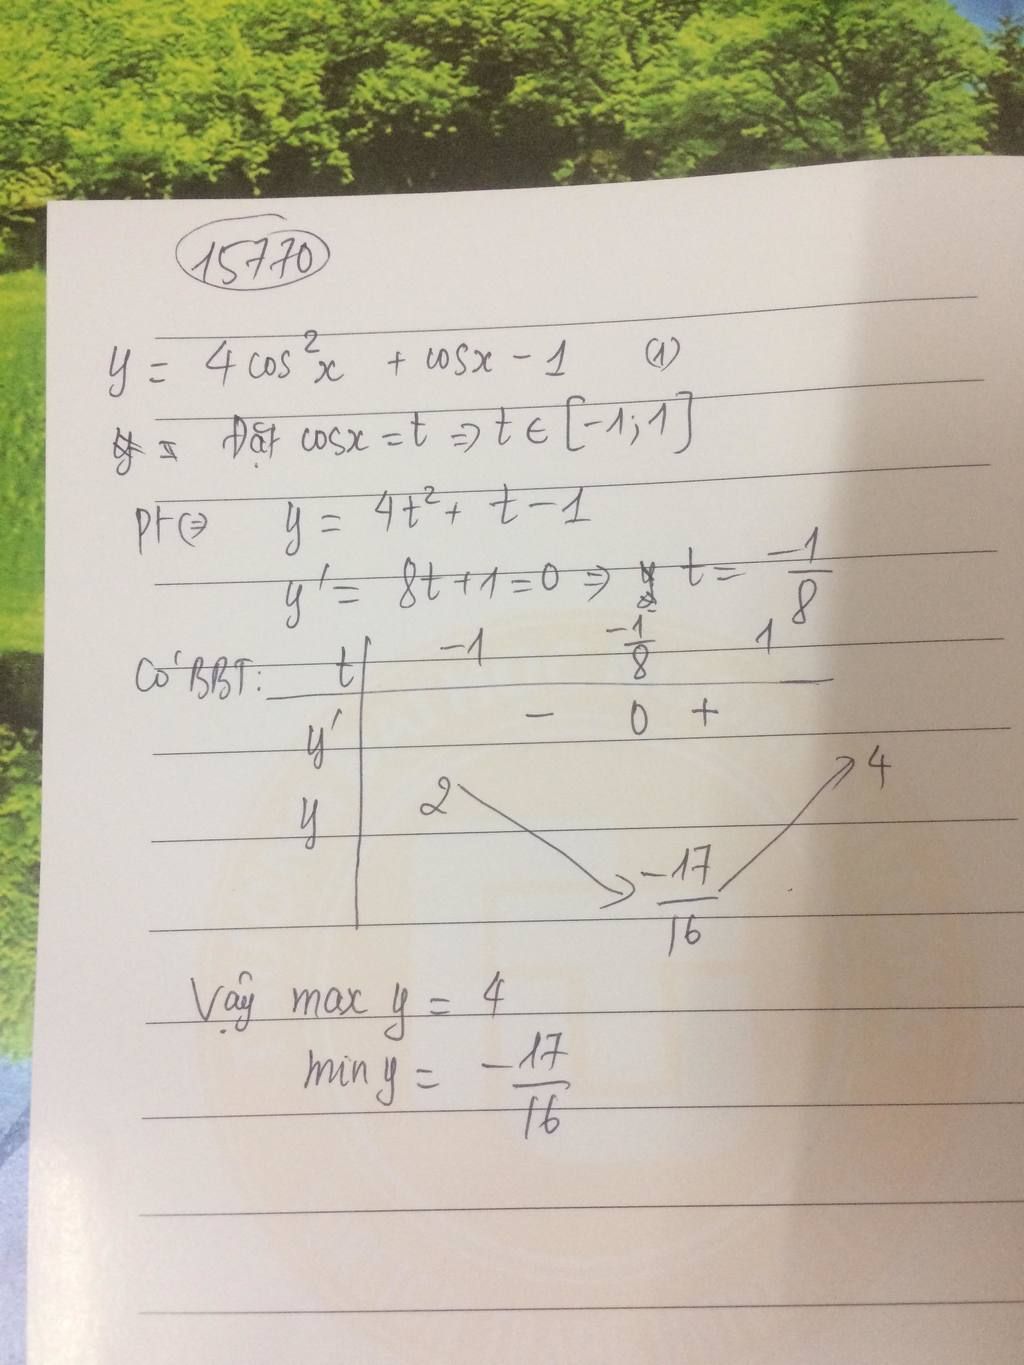 15770
y = 4cos²x + cosx - 1 (1)
Đặt cosx = t => t ∈ [-1; 1]
Pt <=> y = 4t² + t - 1
y' = 8t + 1 = 0 => t = -1/8
Có BBT: t -1 -1/8 1
y' - 0 +
y 2 -17/16 4
Vậy max y = 4
min y = -17/16